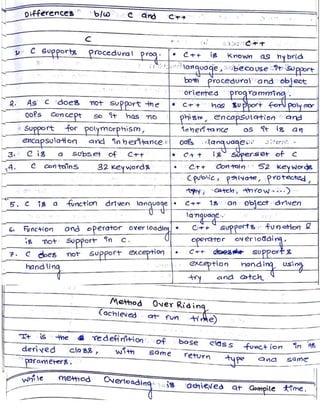 Differences b/w C and C++
C
C++
1. C supports procedural prog.
• C++ is known as hybrid
language, because it support
both procedural and object
oriented programming.
2. As C does not support the
OOPs concept so it has no
support for polymorphism,
encapsulation and inheritance
• C++ has support for polymor
phism, encapsulation and
inheritance as it is an
OOPs language
3. C is a subset of C++
• C++ is superset of C
4. C contains 32 keywords
• C++ contain 52 keywords
(public, private, protected,
try, catch, throw....)
5. C is a function driven language
• C++ is an object driven
language.
6. Function and operator overloading
is not support in C.
• C++ supports function &
operator overloading.
7. C does not support exception
handling
• C++ supports
exception handing using
try and catch
Method Over Riding
(achieved at run time)
It is the redefinition of base class function in its
derived class, with same return type and same
parameters.
while method Overloading is achieved at Compile time.